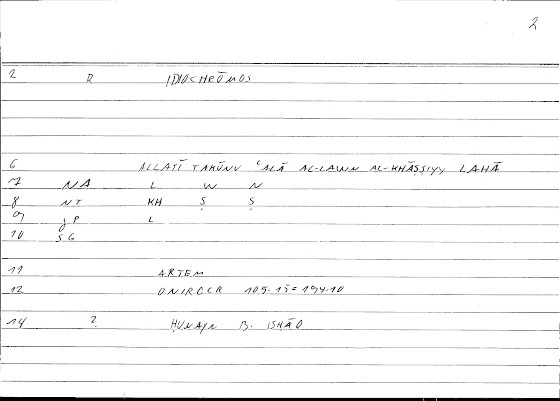 2
2 R IDIOCHRŌMOS
6 ALLATĪ TAKŪNU ʿALĀ AL-LAWN AL-KHĀṢṢIYY LAHĀ
7 NA L W N
8 NT KH Ṣ Ṣ
9 JP L
10 SG
11 ARTEM
12 ONIROCR 109.15=194.10
14 ? ḤUNAYN B. ISḤĀQ